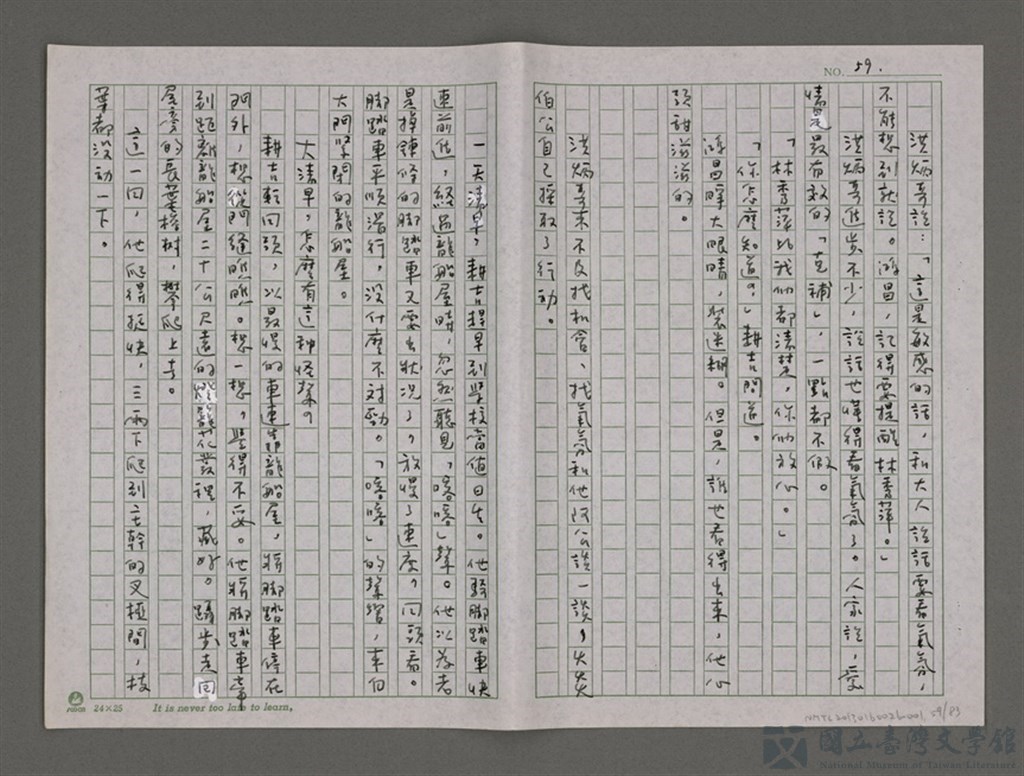 NO. 59.
洪炳哥說:「這是敏感的話,和大人說話要看氣氛,
不能想到就說。鴻昌,記得要提醒林秀萍。」
洪炳哥進步不少,說話也懂得看氣氛了。人家說,愛
情是最有效的「克補」,一點都不假。
「林秀萍比我們都清楚,你們放心。」
「你怎麼知道?」耕吉問道。
鴻昌睜大眼睛,裝迷糊。但是,誰也看得出來,他心
頭甜滋滋的。
洪炳哥來不及找機會、找氣氛和他阿公談一談,火炎
伯公自己採取了行動。
一天清早,耕吉提早到學校當值日生。他騎腳踏車快
速前進,經過龍船屋時,忽然聽見「喀喀」聲。他以為老
是掉鍊條的腳踏車又要出狀況了,放慢了速度,回頭看。
腳踏車平順滑行,沒什麼不對勁。「喀喀」的聲響,來自
大門緊閉的龍船屋。
大清早,怎麼有這種怪聲?
耕吉轉回頭,以最慢的車速靠龍船屋,將腳踏車停在
門外,想從門縫瞧瞧。想一想,覺得不妥。他將腳踏車牽
到距離龍船屋二十公尺遠的燈籠花叢裡,藏好。躡步走回
屋旁的長葉榕樹,攀爬上去。
這一回,他爬得挺快,三兩下爬到主幹的叉椏間,枝
葉都沒動一下。
24×25
It is never too late to learn.
59/83
國立臺灣文學館
National Museum of Taiwan Literature